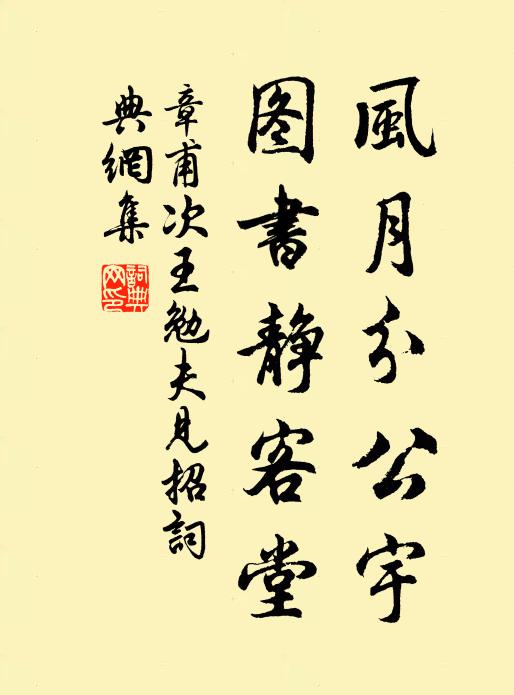 風月分公宇
图書静客堂
章甫次王勉夫見招詞
典網集
詞典网印